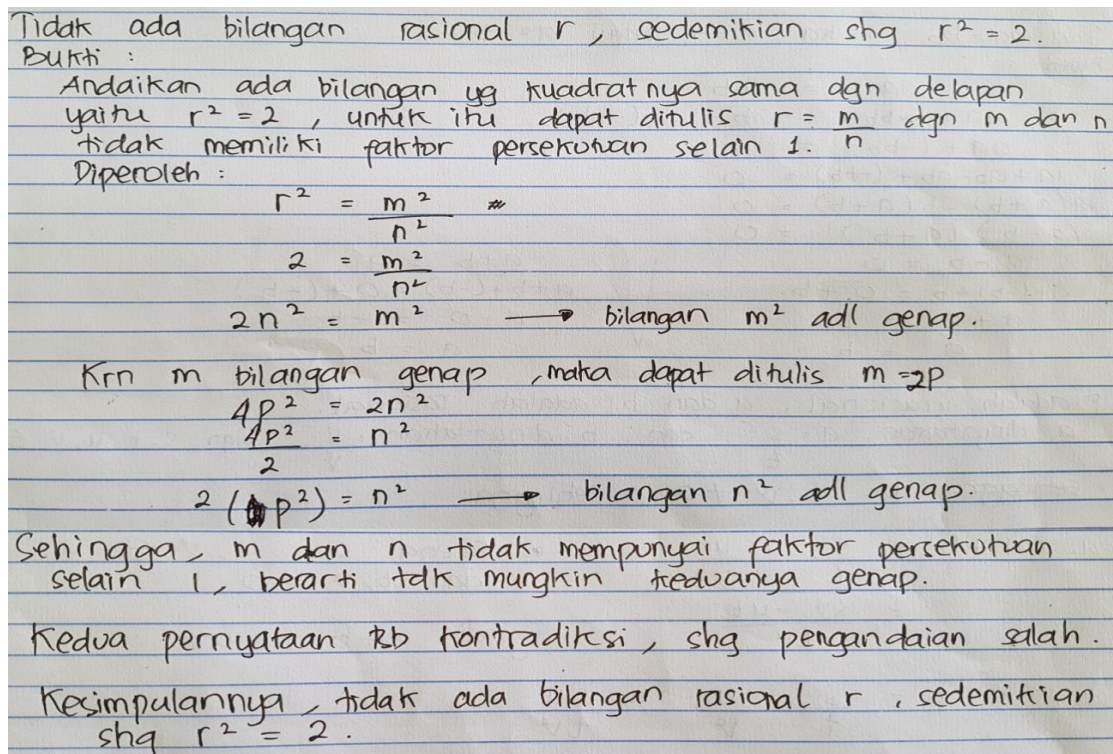 Tidak ada bilangan rasional r, sedemikian shg r² = 2.
Bukti :
Andaikan ada bilangan yg kuadratnya sama dgn delapan
yaitu r² = 2 , untuk itu dapat ditulis r = m/n dgn m dan n
tidak memiliki faktor persekutuan selain 1.
Diperoleh :
r² = m²/n²
2 = m²/n²
2n² = m² → bilangan m² adl genap.
Krn m bilangan genap , maka dapat ditulis m = 2p
4p² = 2n²
4p²/2 = n²
2 (p²) = n² → bilangan n² adl genap.
Sehingga, m dan n tidak mempunyai faktor persekutuan
selain 1, berarti tdk mungkin keduanya genap.
Kedua pernyataan tsb kontradiksi, shg pengandaian salah.
Kesimpulannya, tidak ada bilangan rasional r, sedemikian
shg r² = 2.